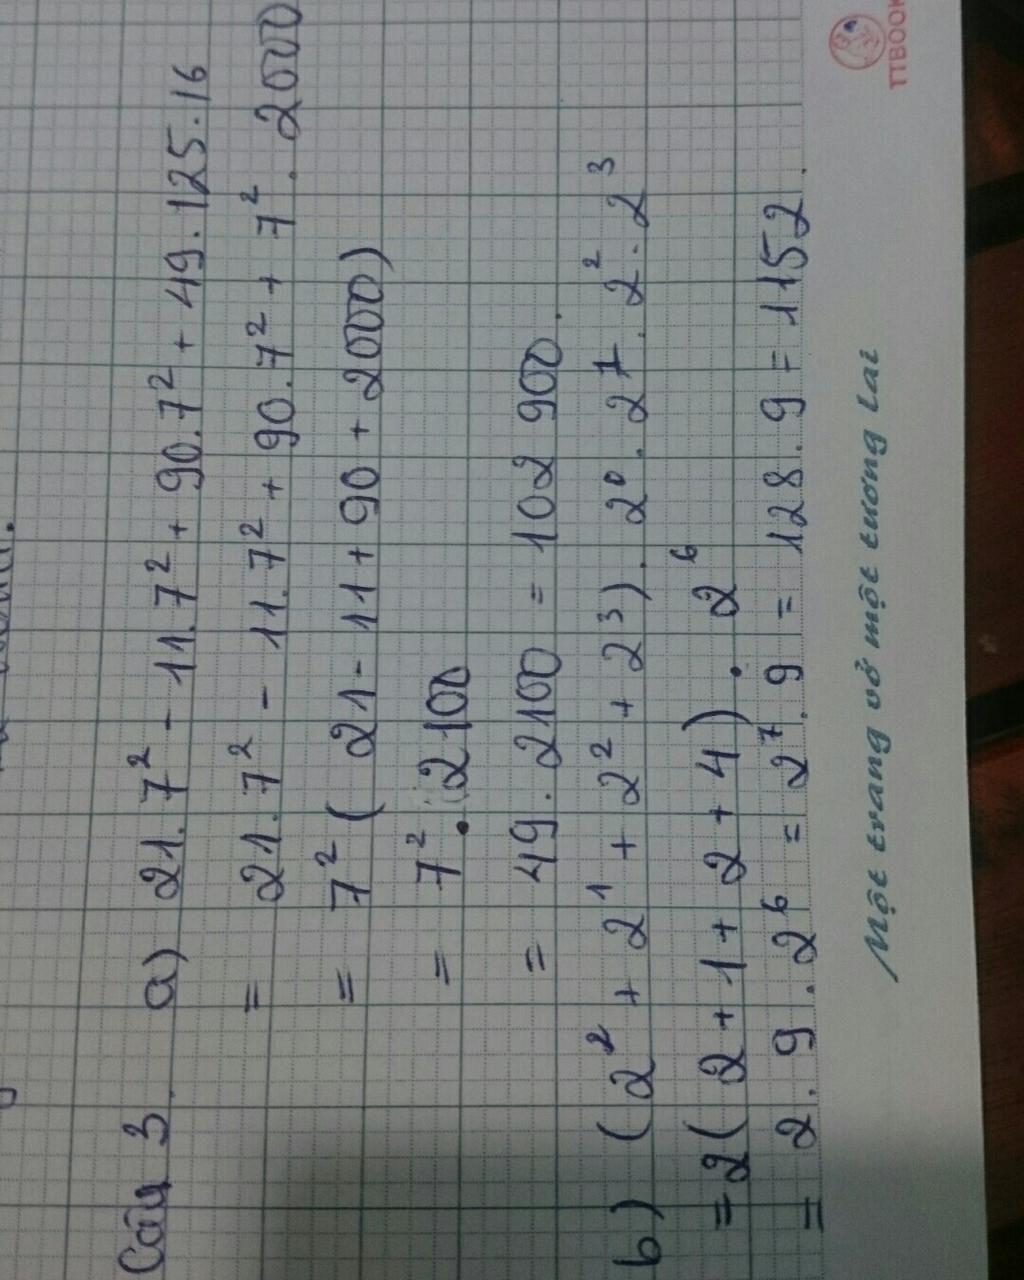 Câu 3. a) 21. 7² - 11. 7² + 90. 7² + 49. 125. 16
= 21. 7² - 11. 7² + 90. 7² + 7². 2000
= 7² ( 21 - 11 + 90 + 2000)
= 7² . 2100
= 49 . 2100 = 102 900.
b) (2² + 2¹ + 2² + 2³). 2⁰. 2¹. 2². 2³
= 2( 2 + 1 + 2 + 4) . 2⁶
= 2. 9. 2⁶ = 2⁷. 9 = 128. 9 = 1152.
Một trang vở một tương lai
TTBOOK